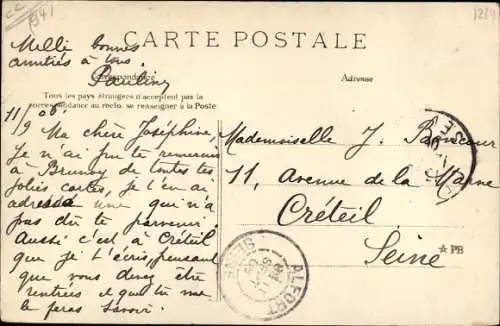 1341
CARTE POSTALE
Mille bonnes
amitiés à tous
Pauline
Correspondance
Adresse
Tous les pays étrangers n'acceptent pas la
correspondance au recto, se renseigner à la Poste
11/9 06
Ma chère Joséphine,
Je n'ai pu te remercier
à Brunoy de toutes tes
jolies cartes, je t'en ai
adressé une qui n'a
pas dû te parvenir
Aussi c'est à Créteil
que je t'écris, pensant
que vous devez être
rentrées et que tu me
le feras savoir.
Mademoiselle J.
11, Avenue de la Marne
Créteil
Seine
★ PB
ALFORT
SEINE